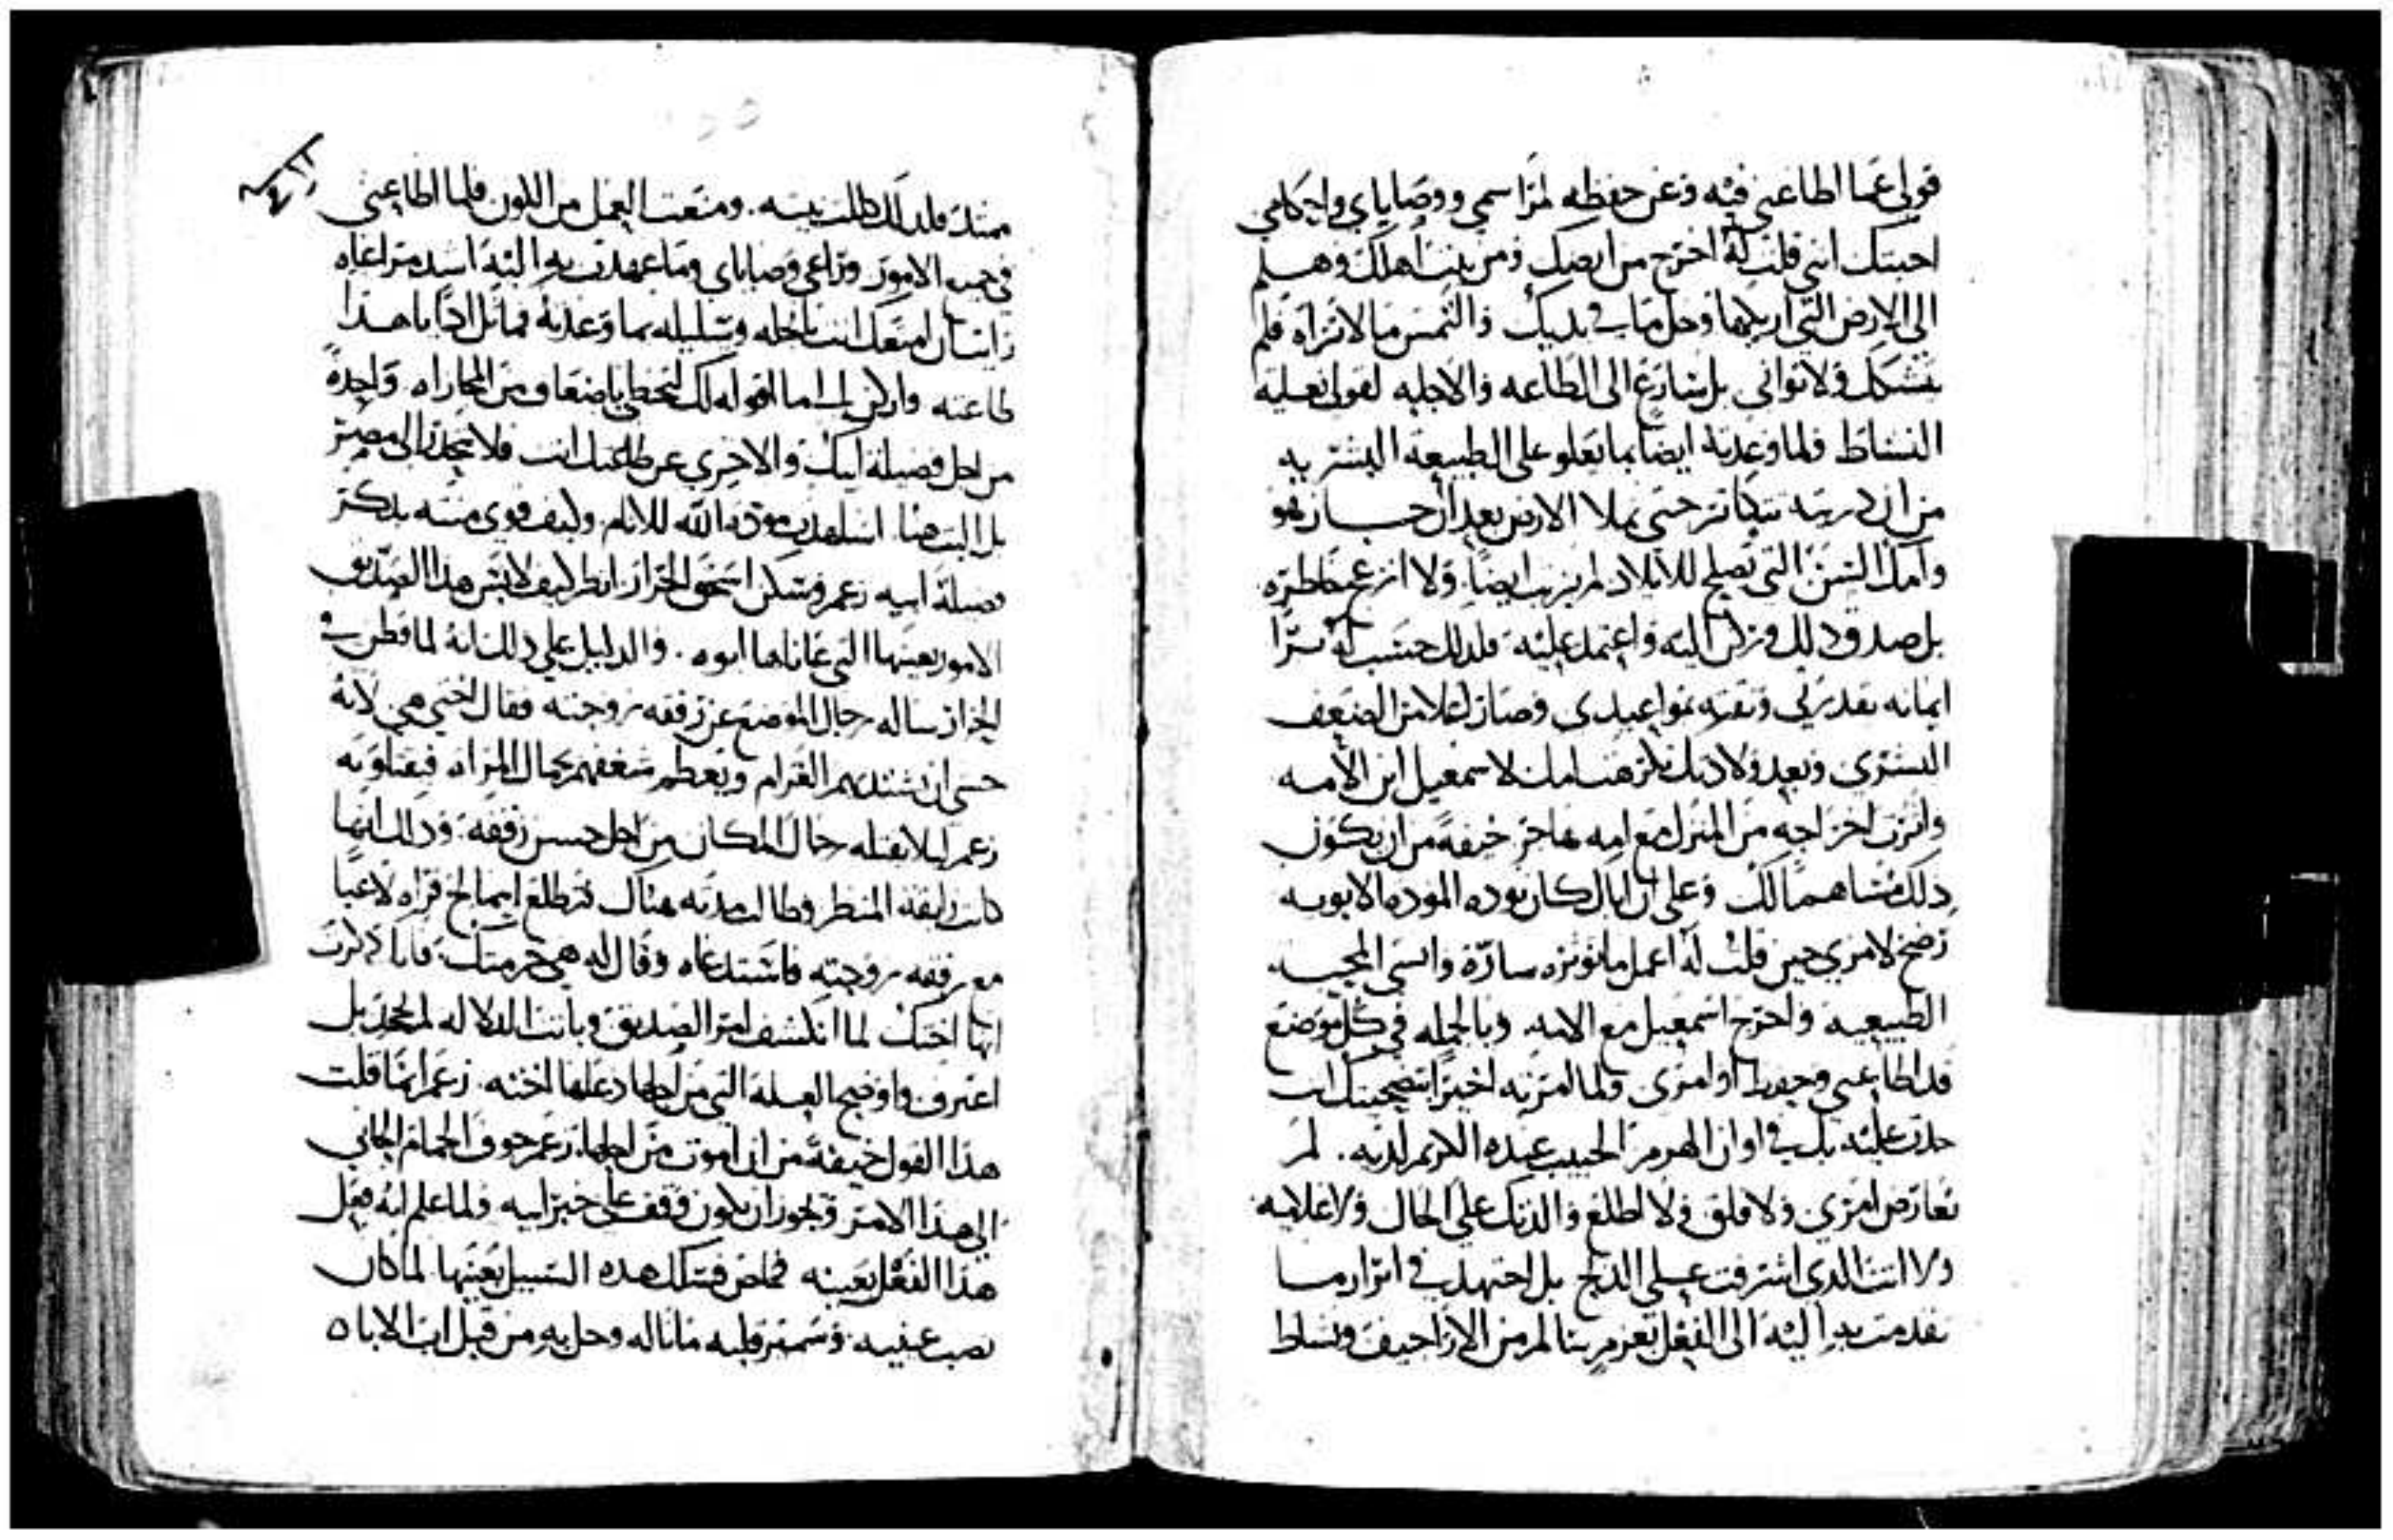 قولي عما اطاعني فيه وعن حفظه لمراسمي ووصاياي واحكامي
اجبتك انني قلت له اخرج من ارضك ومن بيت اهلك وهلم
الى الارض التي اريكها وخل ما في يديك والتمس ما لا تراه فلم
يتشكك ولا توانى بل سارع الى الطاعه والاجابه لقولي بغاية
النشاط فلما وعدته ايضا بما يعلو على الطبيعه البشريه
من ان دريته تتكاثر حتى تملا الارض بعد ان جاز هو
وامك السن التي تصلح للايلاد لم يرتب ايضا ولا انزعج خاطره
بل صدق ذلك وركن اليه واعتمد عليه فلذلك حسب له برا
ايمانه بقدرتي وثقته بمواعيدي وصار اعلا من الضعف
البشري وبعد ولادتك تكرهت امك لاسمعيل ابن الامه
واثرت اخراجه من المنزل مع امه هاجر خيفة من ان يكون
ذلك مساهما لك وعلى ان اباك كان يوده الموده الابويه
رضخ لامري حين قلت له اعمل ما توثره ساره وانسي المحبه
الطبيعيه واخرج اسمعيل مع الامه وبالجمله في كل موضع
قد اطاعني وحفظ اوامري ولما امرته اخيرا بتضحيتك انت
جدت عليه بك في اوان الهرم الحبيب عنده الكريم لديه . لم
يعارض امري ولا قلق ولا اطلع والدتك على الحال ولا غلاميه
ولا انت الذي اشرفت على الذبح بل اجتهد في ابراز ما
تقدمت به اليه الى الفعل بعزم سالم من الاراجيف ونشاط
ممتد فلذلك كللت نيته . ومنعت العمل من الكون فلما اطاعني
في جميع الامور وراعى وصاياي وما عهدت به اليه اشد مراعاه
رايت ان امتعك انت ناجله وسليله بما وعدته فماثل اذا يا هذا
طاعته واركن الى ما اقوله لك لتحظى باضعاف من المجازاه واحدة
من اجل فضيلة ابيك والاخرى عن طاعتك انت فلا تنحدر الى مصر
بل البث هنا . اشاهدت مودة الله للانام وكيف قوي منته بذكر
فضيلة ابيه زعم وسكن اسحق الجرار انظر كيف لابس هذا الصديق
الامور بعينها التي عاناها ابوه . والدليل على ذلك انه لما قطن في
الجرار ساله رجال الموضع عن رفقه زوجته فقال اختي هي لانه
خشي ان يشتد بهم الغرام ويعظم شغفهم بجمال المراه فيقتلونه
زعم ليلا يقتله رجال المكان من اجل حسن رفقه وذلك انها
كانت رايقة المنظر وطالت مدته هناك فتطلع ابيمالخ فراه لاعبا
مع رفقه زوجته فاستدعاه وقال له هي حرمتك فلماذا ذكرت
انها اختك لما انكشف امر الصديق وبانت الدلاله لم يجحد بل
اعترف واوضح العله التي من اجلها دعاها اخته زعم انما قلت
هذا القول خيفة من ان اموت من اجلها زعم خوف الحمام الجاني
الى هذا الامر ويجوز ان يكون وقف على خبر ابيه ولما علم انه فعل
هذا الفعل بعينه فخاض تلك هذه السبيل بعينها لما كان
نصب عينيه وسمير قلبه ما ناله وحل به من قبل اب الاباه